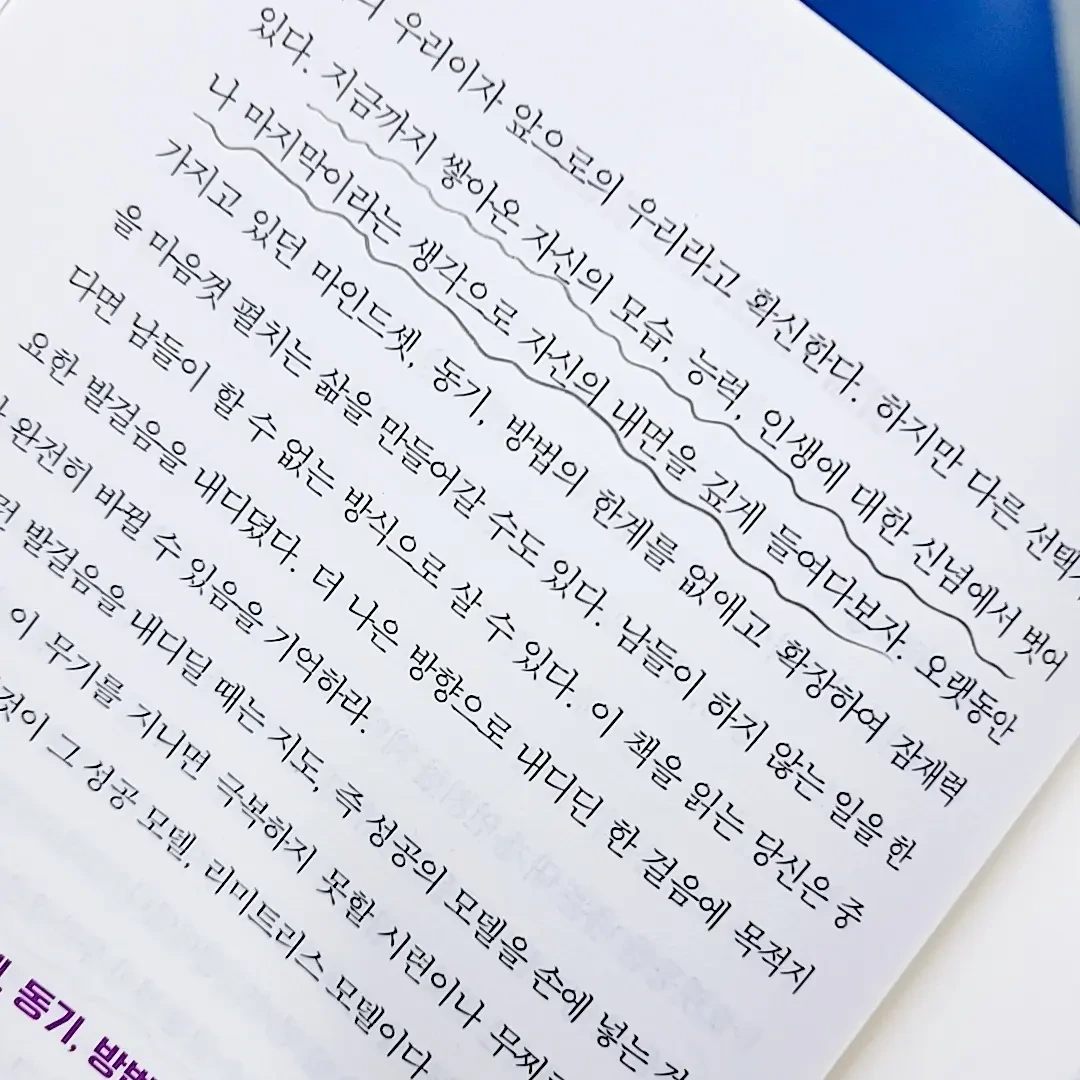 우리이자 앞으로의 우리라고 확신한다. 하지만 다른 선택
있다. 지금까지 쌓아온 자신의 모습, 능력, 인생에 대한 신념에서 벗어
나 마지막이라는 생각으로 자신의 내면을 깊게 들여다보자. 오랫동안
가지고 있던 마인드셋, 동기, 방법의 한계를 없애고 확장하여 잠재력
을 마음껏 펼치는 삶을 만들어갈 수도 있다. 남들이 하지 않는 일을 한
다면 남들이 할 수 없는 방식으로 살 수 있다. 이 책을 읽는 당신은 중
요한 발걸음을 내디뎠다. 더 나은 방향으로 내디딘 한 걸음에 목적지
완전히 바뀔 수 있음을 기억하라.
발걸음을 내디딜 때는 지도, 즉 성공의 모델을 손에 넣는
이 무기를 지니면 극복하지 못할 시련이나 무찌
것이 그 성공 모델, 리미트리스 모델이다.
, 동기, 방법